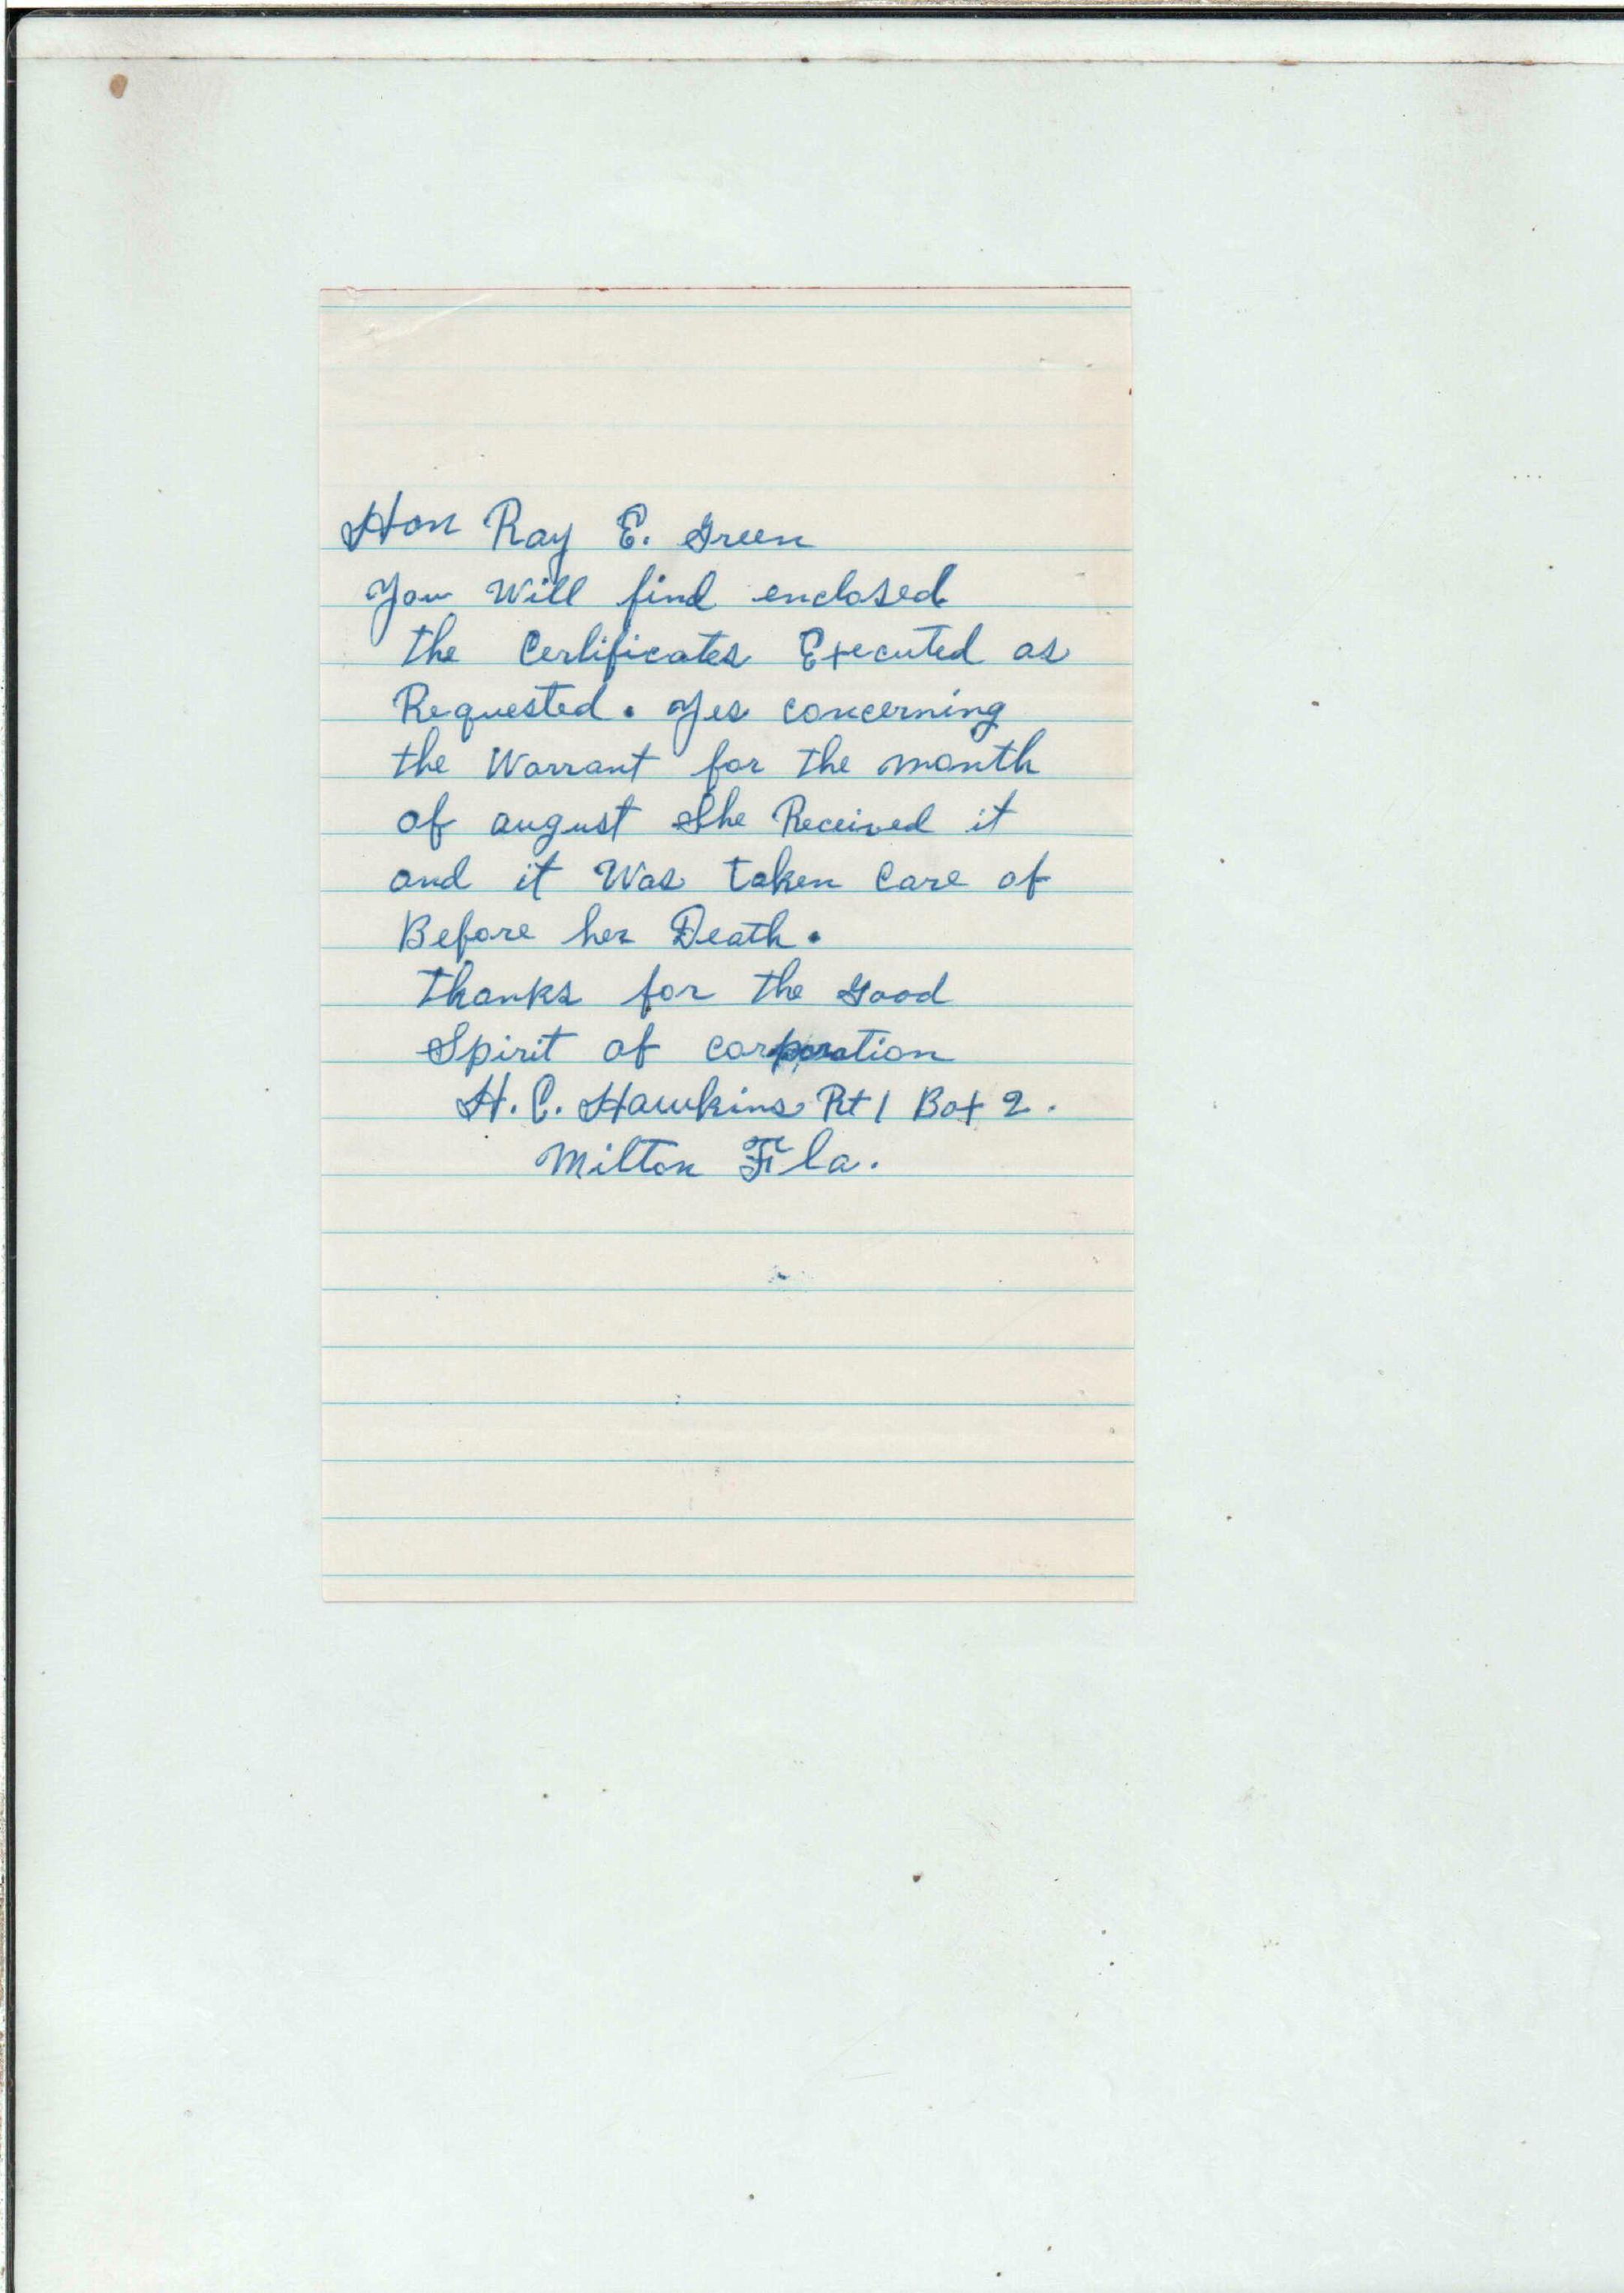 Hon Ray E. Green
You Will find enclosed
the Certificates Executed as
Requested. Yes concerning
the Warrant for the month
of august She Received it
and it Was taken Care of
Before her Death.
Thanks for the Good
Spirit of corporation
H. C. Hawkins Rt 1 Box 2.
Milton Fla.